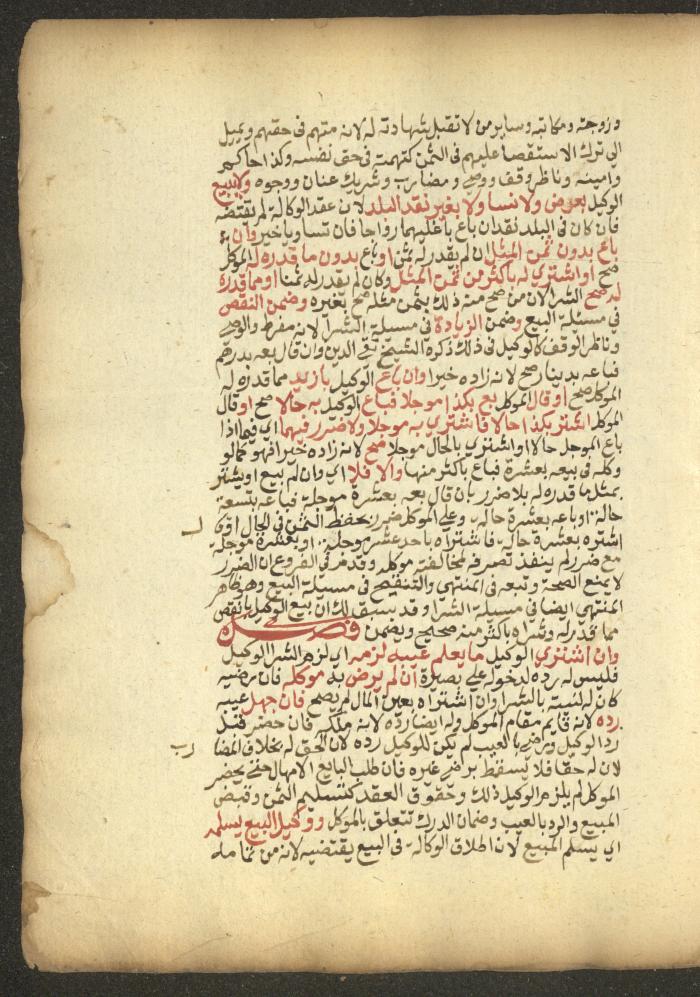 وزوجته ومكاتبه وساير من لا تقبل شهادته له لانه متهم في حقهم ويميل
الى ترك الاستقصا عليهم في الثمن كتهمته في حق نفسه وكذا حاكم
وامينه وناظر وقف ووصي ومضارب وشريك عنان ووجوه ولا يبيع
الوكيل بعرض ولا نسا ولا بغير نقد البلد لان عقد الوكالة لم يقتضه
فان كان في البلد نقدان باع باغلبهما رواجا فان تساويا خير وان
باع بدون ثمن المثل ان لم يقدر له ثمن او باع بدون ما قدره له الموكل
صح او اشترى له باكثر من ثمن المثل وكان لم يقدر له ثمنا او مما قدره
له صح الشرا لان من صح منه ذلك بثمن مثله صح بغيره وضمن النقص
في مسئلة البيع وضمن الزيادة في مسيلة الشرا لانه مفرط والوصي
وناظر الوقف كالوكيل في ذلك ذكره الشيخ تقي الدين وان قال بعه بدرهم
فباعه بدينار صح لانه زاده خيرا وان باع الوكيل بازيد مما قدره له
الموكل صح او قال الموكل بع بكذا موجلا فباع الوكيل به حالا صح او قال
الموكل اشتر بكذا حالا فاشترى به موجلا ولا ضرر فيهما اي فيما اذا
باع الموجل حالا او اشترى بالحال موجلا صح لانه زاده خيرا فهو كما لو
وكله في بيعه بعشرة فباع باكثر منها والا فلا اي وان لم يبع او يشتر
بمثل ما قدره له بلا ضرر بان قال بعه بعشرة موجلة فباعه بتسعة
حالة او باعه بعشرة حالة وعلى الموكل ضرر بحفظ الثمن في الحال او قال
اشتره بعشرة حالة فاشتراه باحد عشر موجلة او بعشرة موجلة
مع ضرر لم ينفذ تصرفه لمخالفته موكله وقدم في الفروع ان الضرر
لا يمنع الصحة وتبعه في المنتهى والتنقيح في مسيلة البيع وهو ظاهر
المنتهى ايضا في مسيلة الشرا وقد سبق لك ان بيع الوكيل بانقص
مما قدر له وشراه باكثر منه صحيح ويضمن فصل
وان اشترى الوكيل ما يعلم عيبه لزمه اي لزم الشرا الوكيل
فليس له رده لدخوله على بصيرة ان لم يرض به موكله فان رضيه
كان له لنيته بالشرا وان اشتراه بعين المال لم يصح فان جهل عيبه
رده لانه قايم مقام الموكل وله ايضا رده لانه ملكه فان حضر قبل
رد الوكيل ورضي بالعيب لم يكن للوكيل رده لان الحق له بخلاف المضارب
لان له حقا فلا يسقط برضى غيره فان طلب البايع الامهال حتى يحضر
الموكل لم يلزم الوكيل ذلك وحقوق العقد كتسليم الثمن وقبض
المبيع والرد بالعيب وضمان الدرك تتعلق بالموكل ووكيل البيع يسلمه
اي يسلم المبيع لان اطلاق الوكالة في البيع يقتضيه لانه من تمامه